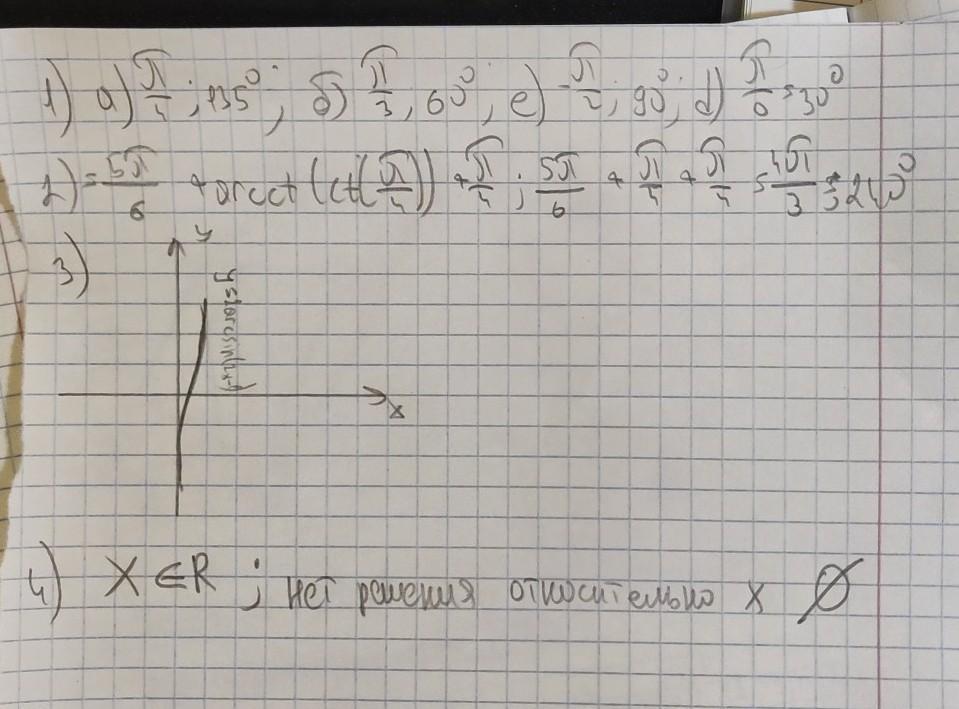 1) а) π/4 ; 135° ; б) π/3 ; 60° ; е) -π/2 ; 90° ; d) π/6 = 30°
2) = 5π/6 + arcct(ct(π/4)) + π/4 ; 5π/6 + π/4 + π/4 = 4π/3 = 240°
3) y
y=2arcsin(2x-1)
x
4) X ∈ R ; нет решения относительно x ∅